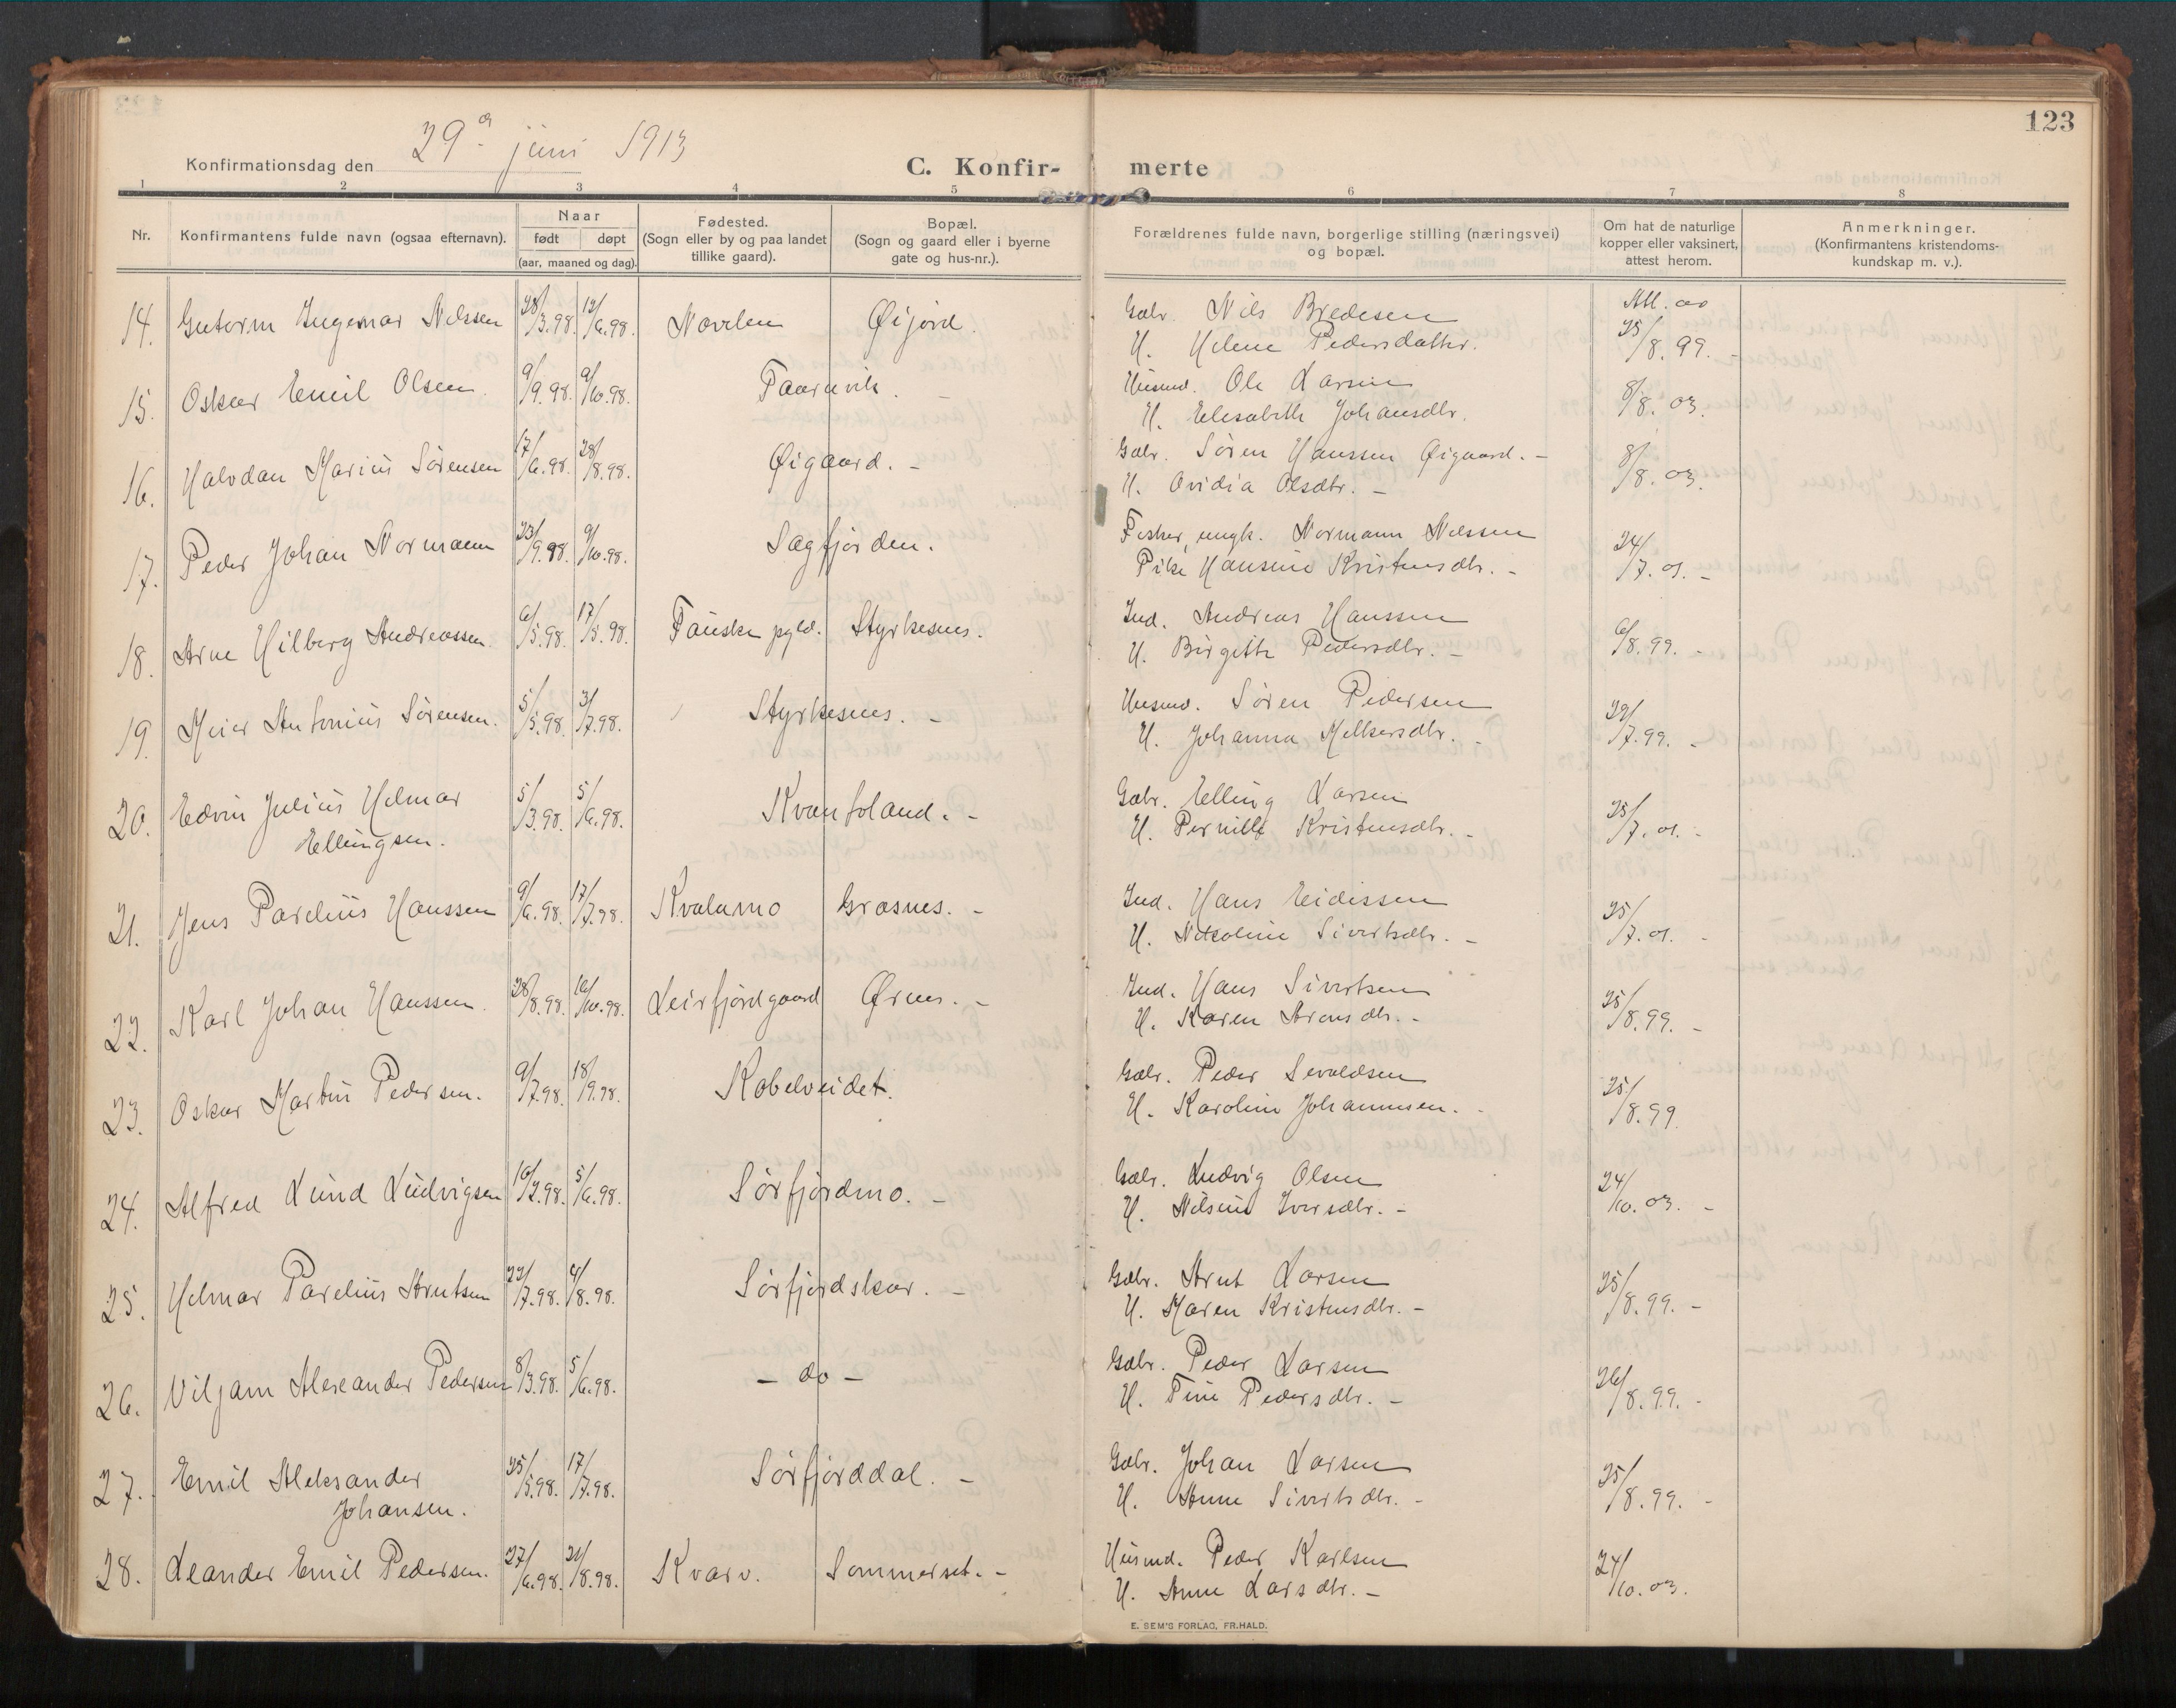 123
Konfirmationsdag den 29de juni 1913
C. Konfir- merte
1 2 3 4 5 6 7 8
Nr.
Konfirmantens fulde navn (ogsaa efternavn).
Naar
født døpt
(aar, maaned og dag).
Fødested.
(Sogn eller by og paa landet
tillike gaard).
Bopæl.
(Sogn og gaard eller i byerne
gate og hus-nr.).
Forældrenes fulde navn, borgerlige stilling (næringsvei)
og bopæl.
Om hat de naturlige
kopper eller vaksinert,
attest herom.
Anmerkninger.
(Konfirmantens kristendoms-
kundskap m. v.).
14. Guttorm Ingemar Nilssen 28/3.98. 12/6.98. Øijord. Gbr. Nils Bredesen Att. av
H. Helene Pedersdatter. 25/8.99. -
15. Oskar Emil Olsen. 9/9.98. 9/10.98. Taarnvik. - Husmd. Ole Larsen
H. Elisabeth Johansdtr. 8/8.03.
16. Halvdan Marius Sørensen 17/6.98. 28/8.98. Øigaard. - Gbr. Søren Hanssen Øigaard. -
H. Ovidia Olsdtr. - 8/8.03.
17. Peder Johan Normann 23/9.98. 9/10.98. Sagfjorden. Fisker, ungk. Normann Nilssen
Pike Hansine Kristensdtr. - 24/7.01. -
18. Arne Hilberg Andreassen 6/5.98. 17/5.98. Fauske pgld. Styrkesnes. Ind. Andreas Hanssen
H. Birgitte Pedersdtr. - 6/8.99. -
19. Meier Antonius Sørensen. 5/5.98. 3/7.98. Styrkesnes. - Husmd. Søren Pedersen
H. Johanna Melkersdtr. - 29/7.99. -
20. Edvin Julius Hilmar 5/3.98. 5/6.98. Kvantoland. - Gbr. Elling Larsen
Ellingsen. H. Pernille Kristensdtr. - 25/7.01. -
21. Jens Parelius Hanssen 9/6.98. 17/7.98. Kvalmmo Grasnes. - Ind. Hans Eidissen
H. Nikoline Sivertsdtr. - 25/7.01. -
22. Karl Johan Hanssen. 28/8.98. 16/10.98. Leirfjordgaard Ørnes. - Ind. Hans Sivertsen
H. Karen Aronsdtr. - 25/8.99. -
23. Oskar Martin Pedersen. 9/7.98. 18/9.98. Kobelveidet. Gbr. Peder Sevaldsen
H. Karoline Johannesen. - 25/8.99
24. Alfred Lund Ludvigsen 10/2.98. 5/6.98. Sørfjordmo. - Gbr. Ludvig Olsen
H. Nilsine Iversdtr. - 24/10.03. -
25. Hilmar Parelius Arntsen 22/7.98. 4/8.98. Sørfjordskar. - Gbr. Arnt Larsen
H. Maren Kristensdtr. - 25/8.99. -
26. Viljam Alexander Pedersen 8/3.98. 5/6.98. - do - Gbr. Peder Larsen
H. Tine Pedersdtr. - 26/8.99. -
27. Emil Aleksander 25/5.98. 17/7.98. Sørfjorddal. - Gbr. Johan Larsen
Johansen. H. Anne Sivertsdtr. - 25/8.99. -
28. Leander Emil Pedersen. 27/6.98. 21/8.98. Kvarv. Sommerset. - Husmd. Peder Karlsen
H. Anne Larsdtr. - 24/10.03.
E. SEM'S FORLAG, FR.HALD.